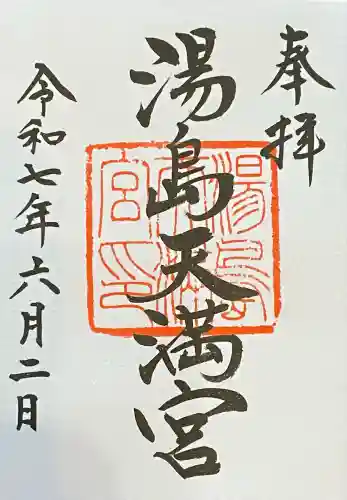 奉拝
湯島天満宮
湯島天満宮印
令和七年六月二日